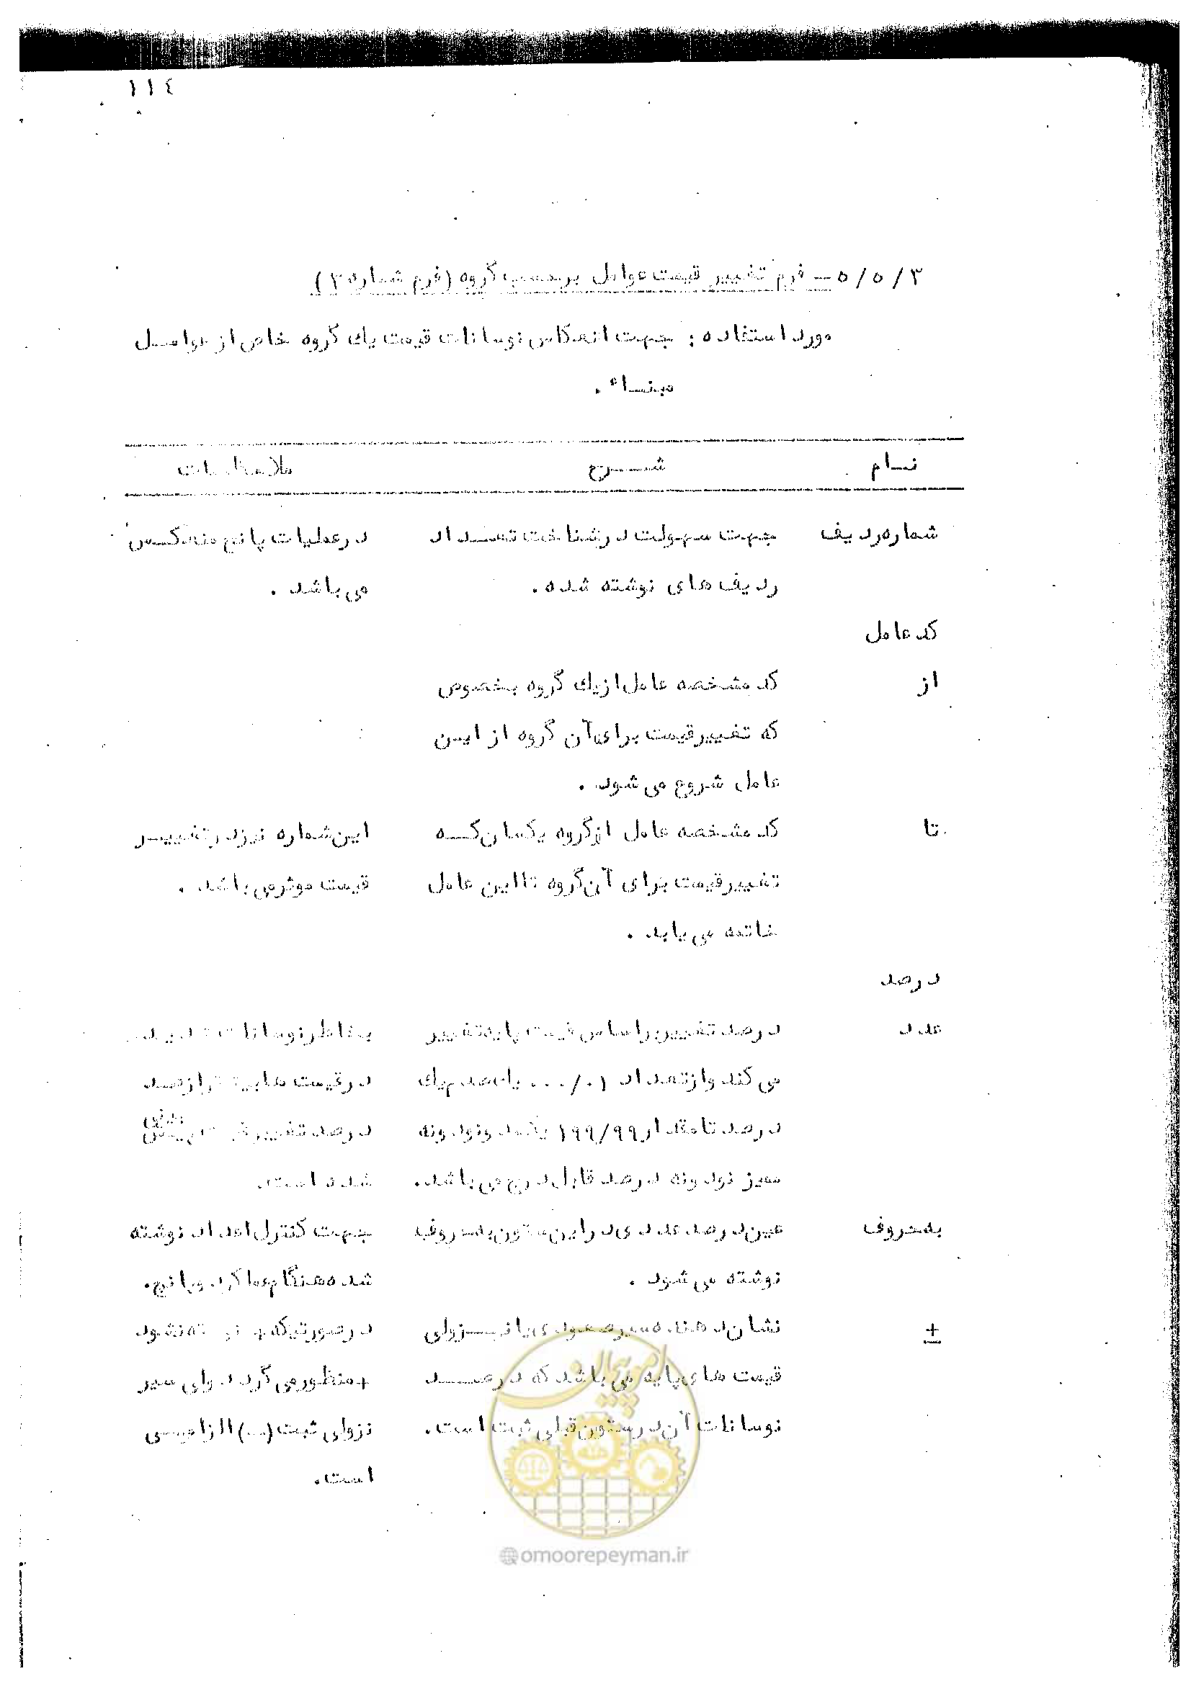 ۱۱٤
۵/۵/۳ – فرم تغییر قیمت عوامل برحسب گروه (فرم شماره ۳)
مورد استفاده : جهت انعکاس نوسانات قیمت یك گروه خاص از عوامل
مبناء .
نام شرح ملاحظات
شماره ردیف جهت سهولت در شناخت تعداد در عملیات پانچ منعکس
ردیف های نوشته شده . می باشد .
کد عامل
از کد مشخصه عامل از یك گروه بخصوص
که تغییر قیمت برای آن گروه از این
عامل شروع می شود .
تا کد مشخصه عامل از گروه یکسان که این شماره نیز در تغییر
تغییر قیمت برای آن گروه تا این عامل قیمت موثر می باشد .
خاتمه می یابد .
درصد
عدد درصد تغییر بر اساس قیمت پایه تغییر بخاطر نوسانات
می کند و از تعداد ۰/۰۱ یك صدم یك در قیمت ها
درصد تا مقدار ۱۹۹/۹۹ یکصد و نود و نه درصد تغییر
ممیز نود و نه درصد قابل درج می باشد . شده است .
به حروف عین درصد عددی در این ستون به حروف جهت کنترل اعداد نوشته
نوشته می شود . شده هنگام عملکرد پانچ .
± نشان دهنده سیر صعودی یا نزولی در صورتیکه + نوشته نشود
قیمت های پایه می باشد که درصد + منظور می گردد ولی سیر
نوسانات آن در ستون قبلی ثبت است . نزولی ثبت (–) الزامی
است .
امور پیمان
@omoorepeyman.ir